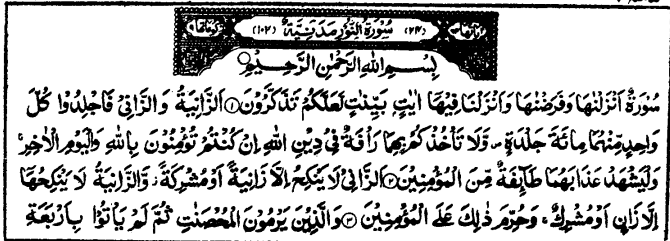 (٢٤) سُوْرَةُ النُّوْرِ مَدَنِيَّةٌ (١٠٢)
بِسْمِ اللهِ الرَّحْمٰنِ الرَّحِيْمِ
سُوْرَةٌ اَنْزَلْنٰهَا وَفَرَضْنٰهَا وَاَنْزَلْنَا فِيْهَا اٰيٰتٍۭ بَيِّنٰتٍ لَّعَلَّكُمْ تَذَكَّرُوْنَ ① اَلزَّانِيَةُ وَالزَّانِيْ فَاجْلِدُوْا كُلَّ
وَاحِدٍ مِّنْهُمَا مِائَةَ جَلْدَةٍ ۪ وَّلَا تَاْخُذْكُمْ بِهِمَا رَاْفَةٌ فِيْ دِيْنِ اللهِ اِنْ كُنْتُمْ تُؤْمِنُوْنَ بِاللهِ وَالْيَوْمِ الْاٰخِرِ ۚ
وَلْيَشْهَدْ عَذَابَهُمَا طَآئِفَةٌ مِّنَ الْمُؤْمِنِيْنَ ② اَلزَّانِيْ لَا يَنْكِحُ اِلَّا زَانِيَةً اَوْ مُشْرِكَةً ۡ وَّالزَّانِيَةُ لَا يَنْكِحُهَا
اِلَّا زَانٍ اَوْ مُشْرِكٌ ۚ وَحُرِّمَ ذٰلِكَ عَلَى الْمُؤْمِنِيْنَ ③ وَالَّذِيْنَ يَرْمُوْنَ الْمُحْصَنٰتِ ثُمَّ لَمْ يَاْتُوْا بِاَرْبَعَةِ